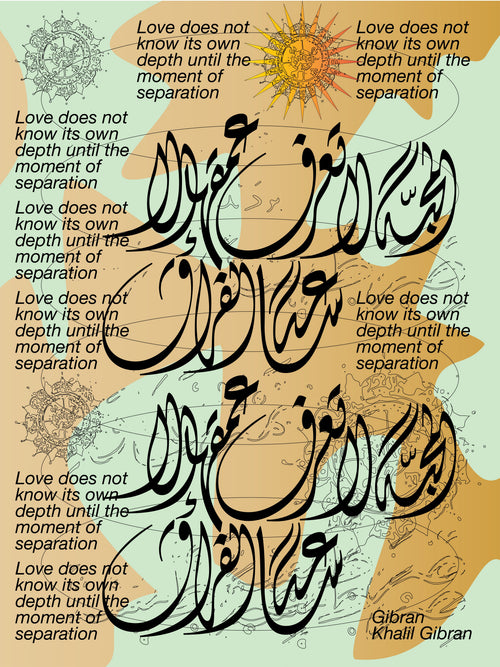 Love does not
know its own
depth until the
moment of
separation
Love does not
know its own
depth until the
moment of
separation
Love does not
know its own
depth until the
moment of
separation
المحبة لا تعرف عمقها إلا
Love does not
know its own
depth until the
moment of
separation
ساعة الفراق
Love does not
know its own
depth until the
moment of
separation
Love does not
know its own
depth until the
moment of
separation
المحبة لا تعرف عمقها إلا
Love does not
know its own
depth until the
moment of
separation
ساعة الفراق
Love does not
know its own
depth until the
moment of
separation
Gibran
Khalil Gibran